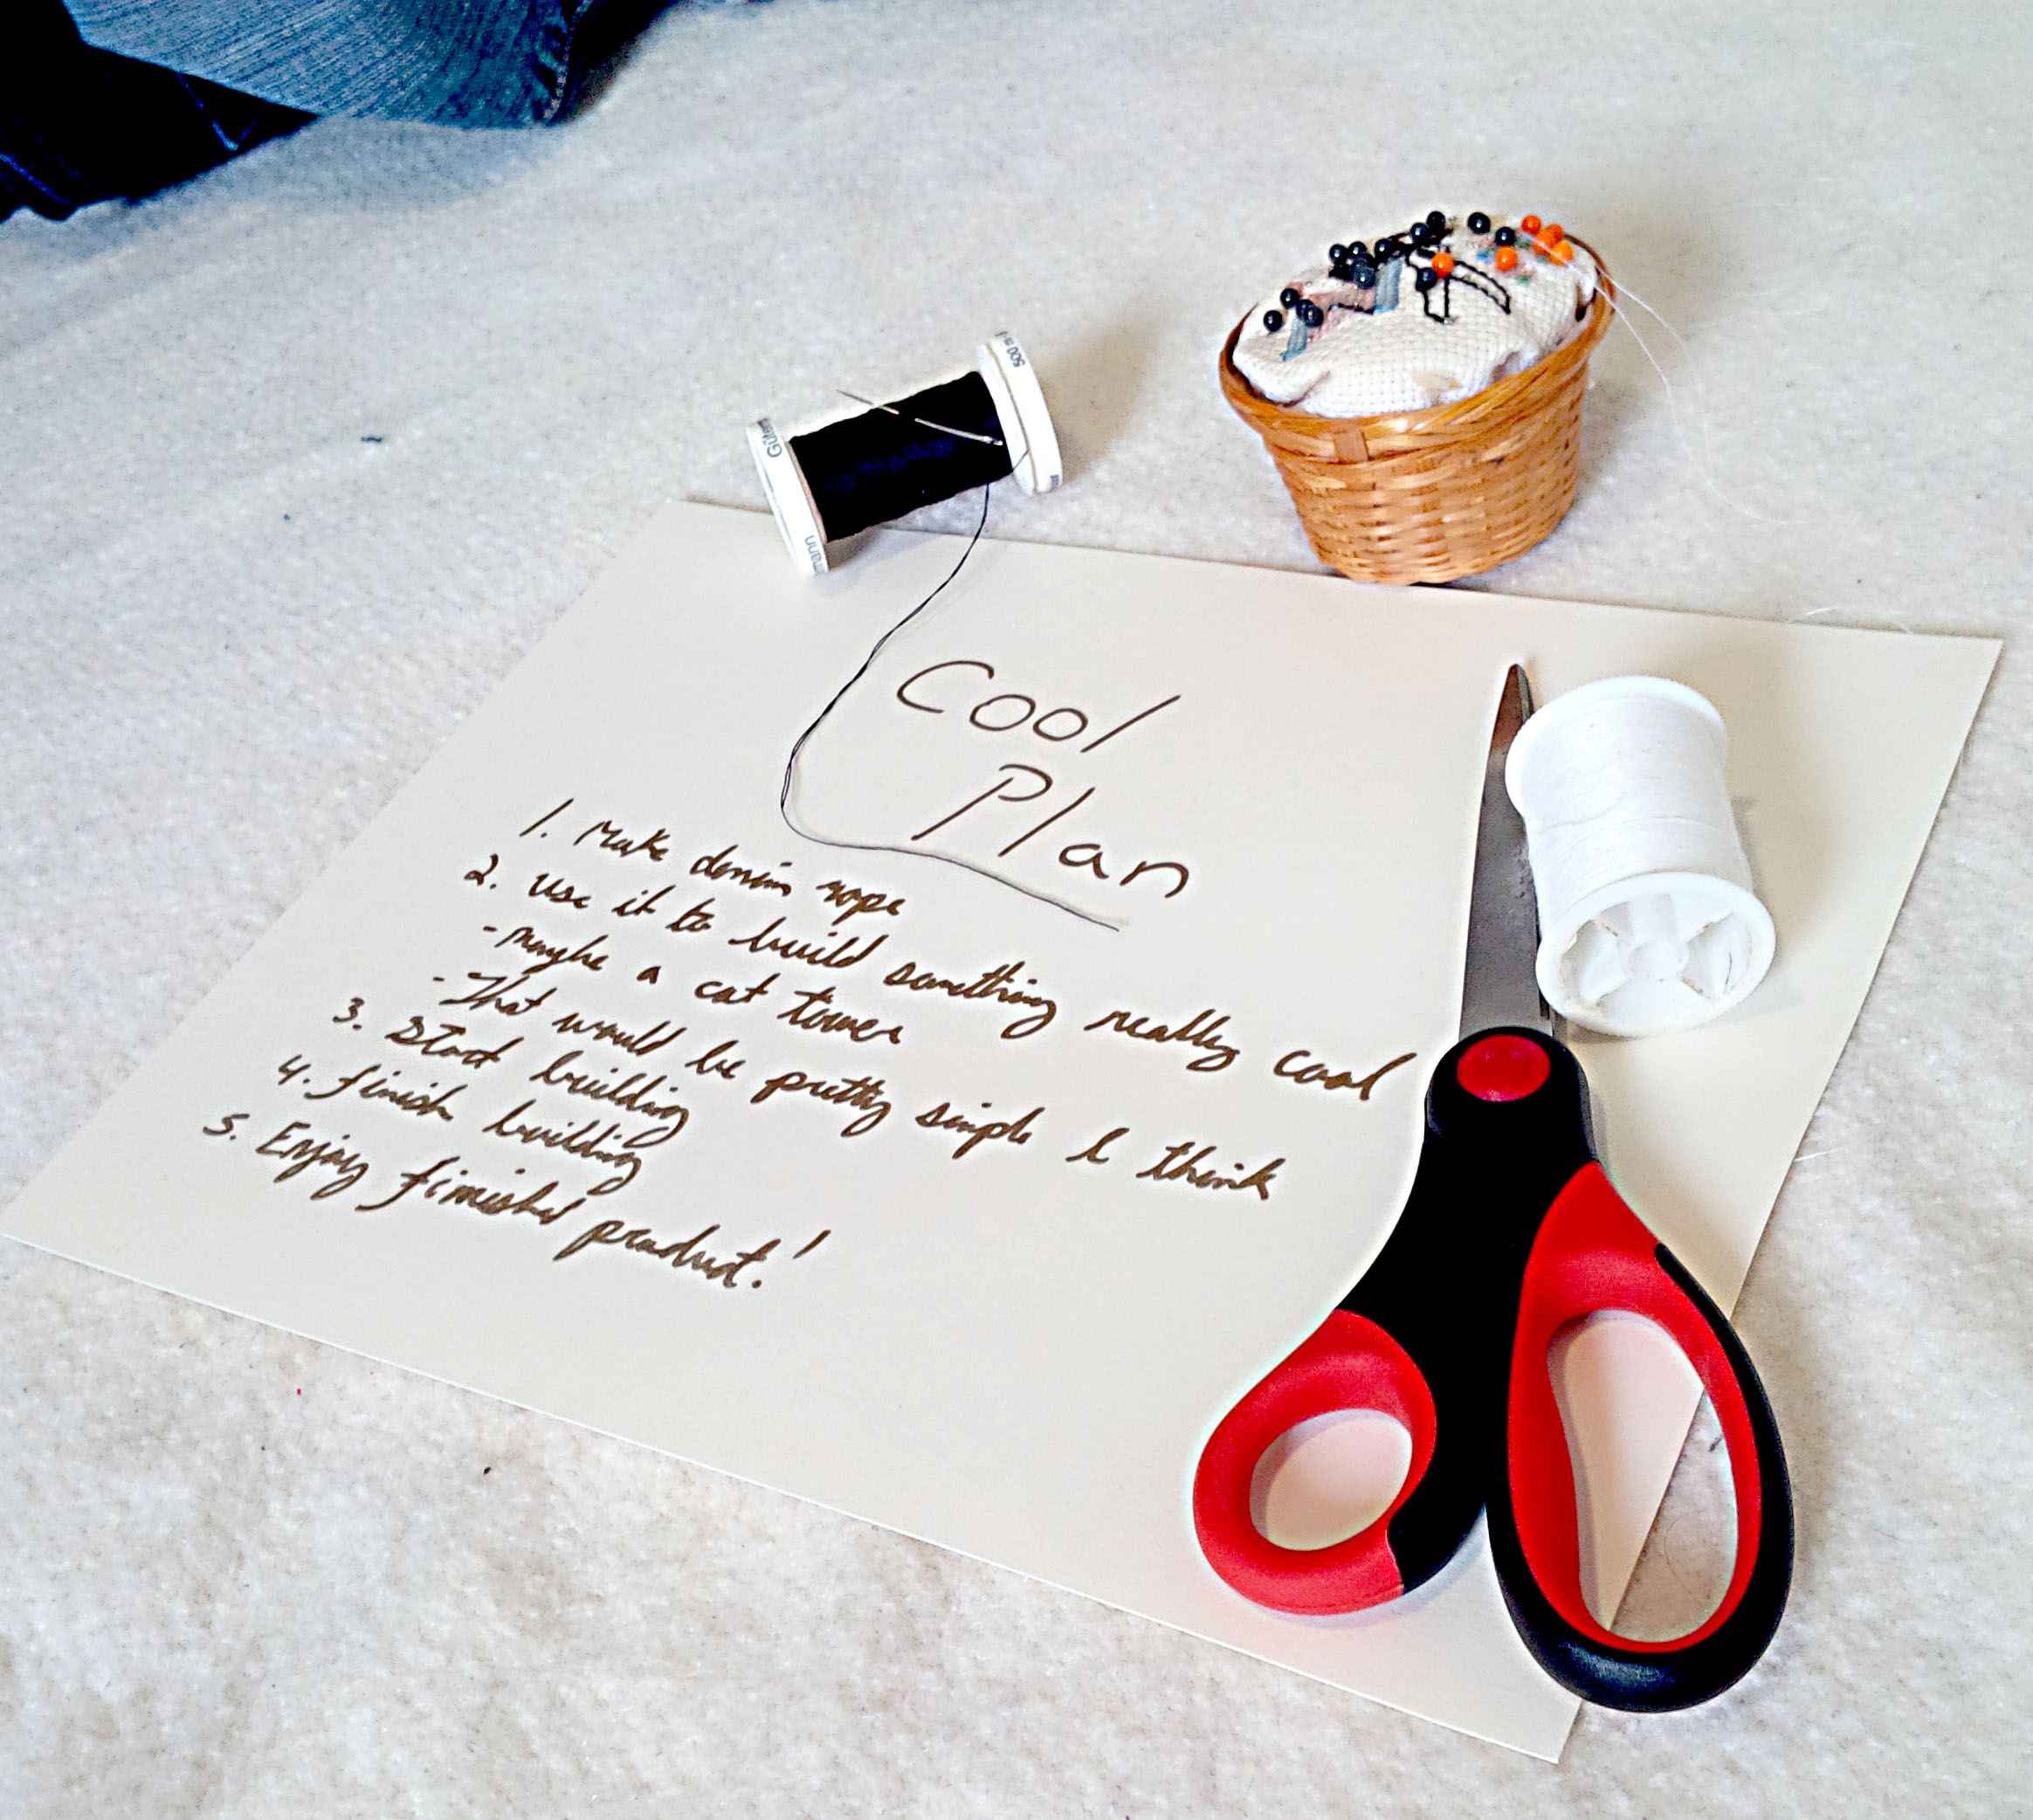 500 m
Güter
mann
Cool
Plan
1. Make denim rope
2. Use it to build something really cool
- maybe a cat tower
- That would be pretty simple I think
3. Start building
4. finish building
5. Enjoy finished product!